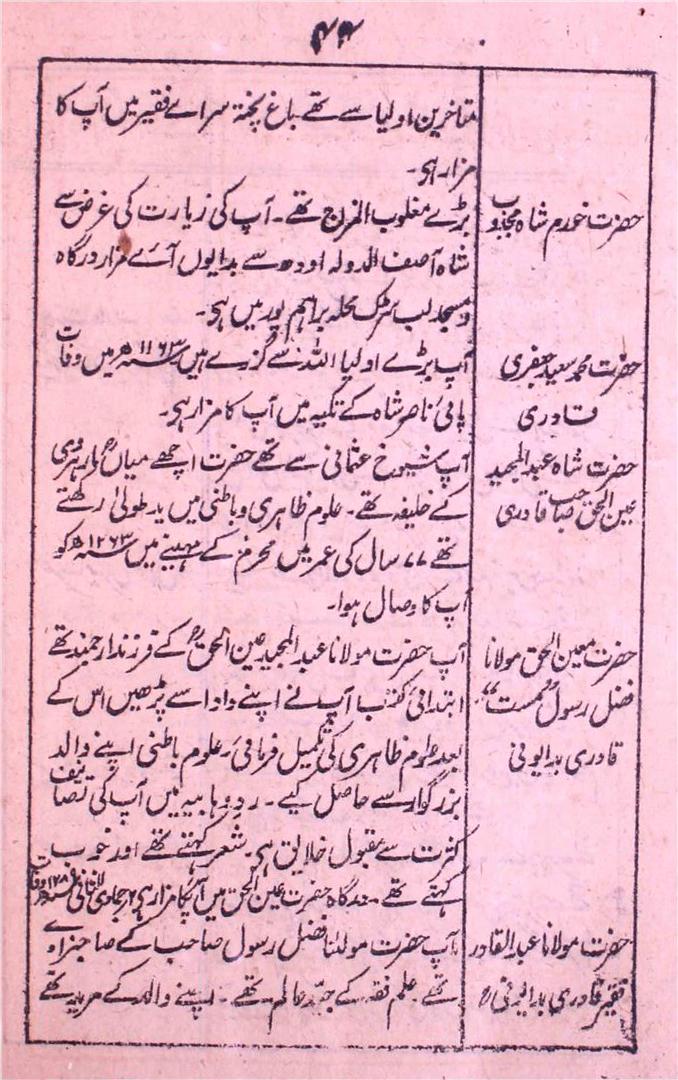 ۴۴
متاخرین اولیا سے تھے باغ پختہ سرائے فقیر میں آپ کا
مزار ہی۔
حضرت خورم شاہ مجذوب
بڑے مغلوب المزاج تھے۔ آپ کی زیارت کی غرض سے
شاہ آصف الدولہ اودھ سے بدایوں آئے مزار درگاہ
و مسجد لب سڑک محلہ براہم پور میں ہی۔
حضرت محمد سعید جعفری
قادری
آپ بڑے اولیا اللہ سے گزرے ہیں ۱۱۶۳ھ میں وفات
پائی ناصر شاہ کے تکیہ میں آپ کا مزار ہی۔
حضرت شاہ عبدالمجید
عین الحق صاحب قادری
آپ شیوخ عثمانی سے تھے حضرت اچھے میاںؒ مارہروی
کے خلیفہ تھے۔ علوم ظاہری و باطنی میں ید طولیٰ رکھتے
تھے ۷۷ سال کی عمر میں محرم کے مہینے میں ۱۲۶۳ھ کو
آپ کا وصال ہوا۔
حضرت معین الحق مولانا
فضل رسول "مست"
قادری بدایونی
آپ حضرت مولانا عبدالمجید عین الحقؒ کے فرزند ارجمند تھے
ابتدائی کتب آپ نے اپنے دادا سے پڑھیں اس کے
بعد علوم ظاہری کی تکمیل فرمائی۔ علوم باطنی اپنے والد
بزرگوار سے حاصل کیے۔ رد وہابیہ میں آپ کی تصانیف
کثرت سے مقبول خلایق ہی۔ شعر کہتے تھے اور خوب
کہتے تھے۔ درگاہ حضرت عین الحق میں آپکا مزار ہی ۲ر جمادی الثانی وفات
حضرت مولانا عبدالقادر
فقیر قادری بدایونیؒ
آپ حضرت مولٰنا فضل رسول صاحب کے صاجزادے
تھے علم فقہ کے جید عالم تھے۔ اپنے والد کے مرید تھے